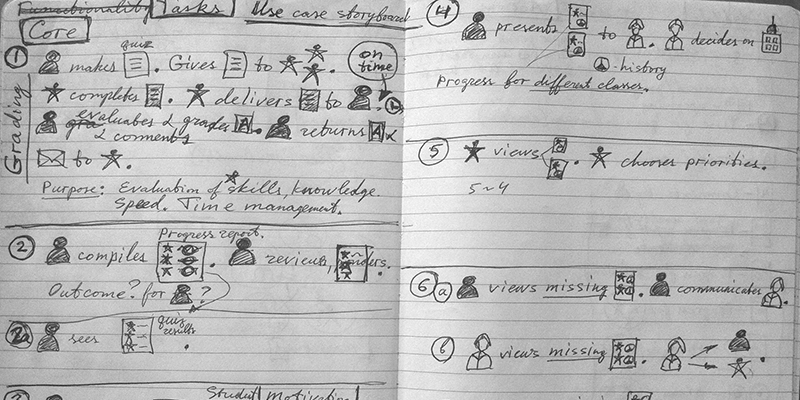 Functionality Tasks Use case storyboard
Core
Grading
1 quiz
makes . Gives to on time
completes . delivers to .
evaluates & grades A . returns A &
& comments
to .
Purpose: Evaluation of skills, knowledge.
Speed. Time management.
Progress report.
2 compiles . reviews,
Outcome? for ?
2a sees quiz results .
Student Motivation
4 presents to . decides on
-history
Progress for different classes.
5 views . chooses priorities.
5~4
6a views missing . communicates .
6 views missing . .